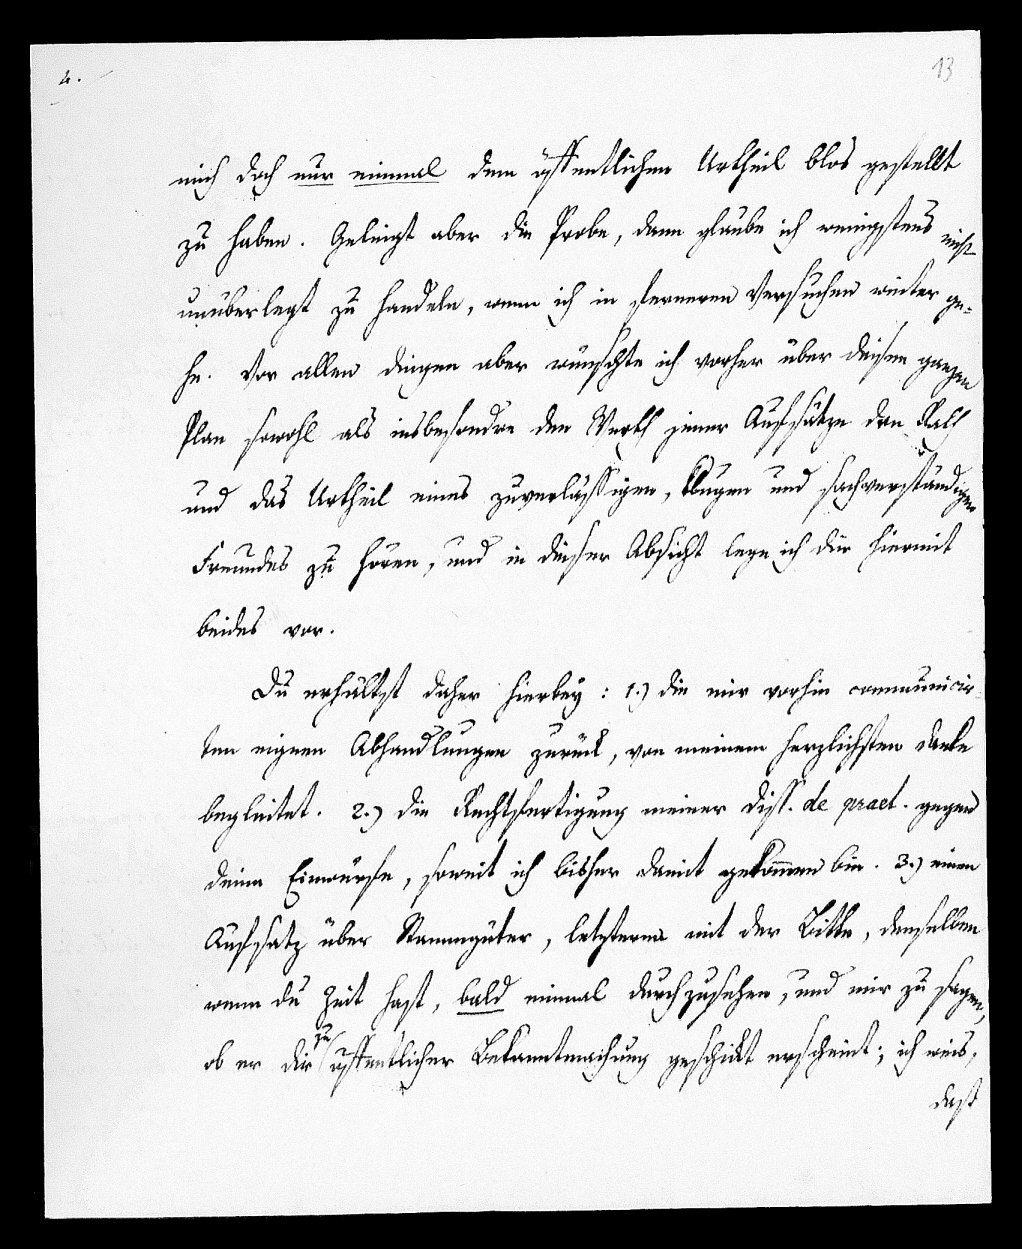 4.
13
mich doch nur einmal dem öffentlichen Urtheil blos gestellt
zu haben. Gelingt aber die Probe, dann glaube ich wenigstens nicht
unüberlegt zu handeln, wenn ich in ferneren Versuchen weiter ge-
he. Vor allen dingen aber wünschte ich vorher über diesen ganzen
Plan sowohl als insbesondre den Werth jener Aufsätze den Rath
und das Urtheil eines zuverlässigen, klugen und sachverständigen
Freundes zu hören, und in dieser Absicht lege ich dir hiermit
beides vor.
Du erhältst daher hierbey: 1.) die mir vorhin communicir-
ten eignen Abhandlungen zurück, von meinem herzlichsten danke
begleitet. 2.) die Rechtfertigung meiner diss. de praet. gegen
deine Einwürfe, soweit ich bisher damit gekommen bin. 3.) einen
Aufsatz über Stammgüter, letzteren mit der Bitte, denselben
wenn du Zeit hast, bald einmal durchzusehen, und mir zu sagen,
ob er dir zu öffentlicher Bekanntmachung geschickt erscheint; ich weis,
daß